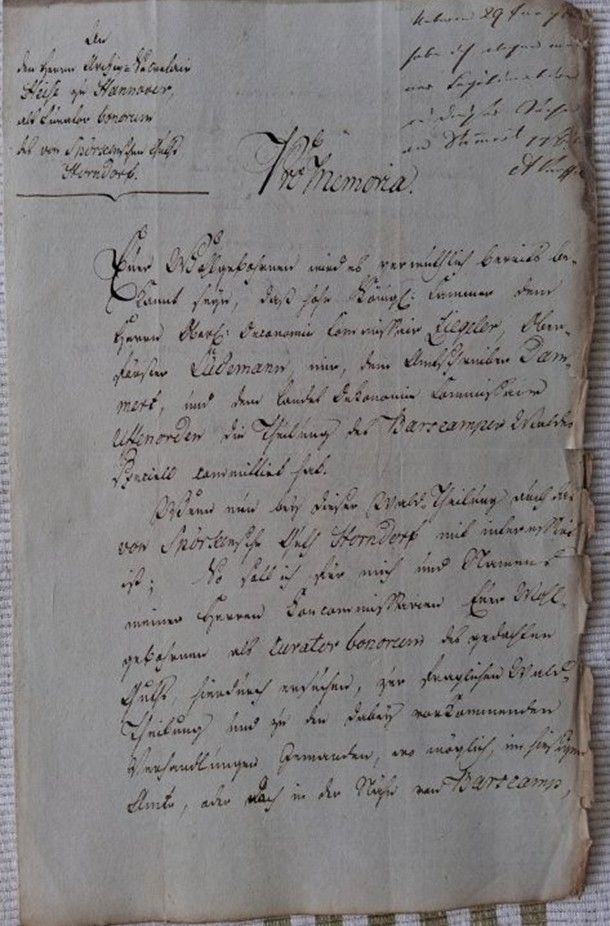 An
den Herrn Archiv-Secretair
Heise zu Hannover,
als Curator bonorum
des von Spörckenschen Guths
Horndorf.
29
habe ich
Pro Memoria.
Euer Wohlgebohrnen wird es vermuthlich bereits be-
kannt seyn, daß hohe Königl: Cammer dem
Herrn Oberl: Oeconomie Commissair Ziegeler, Ober-
förster Lüdemann, mir, dem Amtschreiber Dam-
mert, und dem Landes Oekonomie Commissair
Uttenorden die Theilung des Barscamper Waldes
speciell committirt hat.
Wenn nun bey dieser Wald-Theilung auch das
von Spörckensche Guth Horndorf mit interessirt
ist; So soll ich für mich und Namens
meiner Herren Concommissarien Euer Wohl-
gebohrnen als Curator bonorum des gedachten
Guths, hierdurch ersuchen, zur fraglichen Wald-
Theilung und zu den dabey vorkommenden
Verhandlungen Jemanden, wo möglich, im hiesigen
Amte, oder doch in der Nähe von Barscamp,